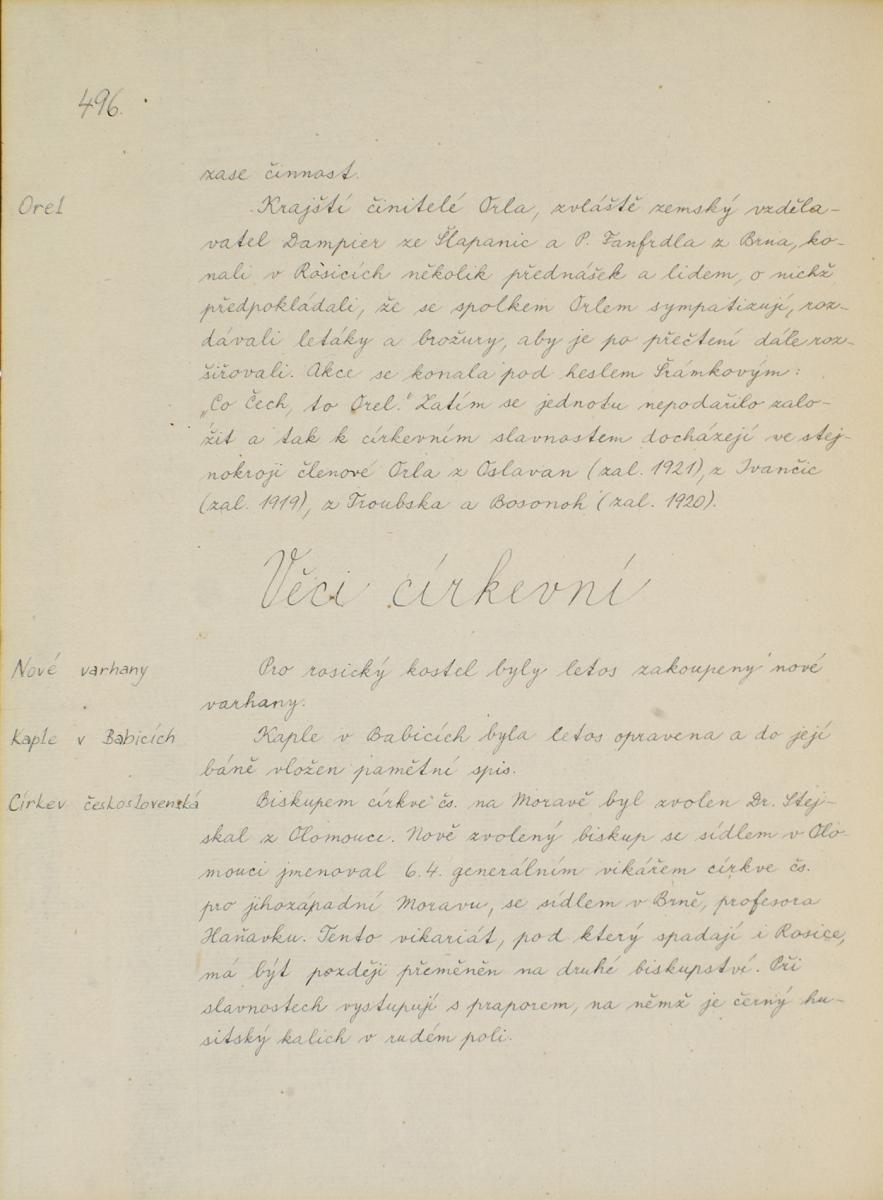 496.
zase činnost.
Orel
Krajští činitelé Orla, zvláště zemský vzděla-
vatel Dampier ze Šlapanic a P. Fanfrdla z Brna, ko-
nali v Rosicích několik přednášek a lidem, o nichž
předpokládali, že se spolkem Orlem sympatizují, roz-
dávali letáky a brožury, aby je po přečtení dále roz-
šiřovali. Akce se konala pod heslem Šrámkovým:
„Co Čech, to Orel.“ Zatím se jednotu nepodařilo zalo-
žit a tak k církevním slavnostem docházejí ve stej-
nokroji členové Orla z Oslavan (zal. 1921), z Ivančic
(zal. 1919), z Troubska a Bosonoh (zal. 1920).
Věci církevní
Nové varhany
Pro rosický kostel byly letos zakoupeny nové
varhany.
Kaple v Babicích
Kaple v Babicích byla letos opravena a do její
báně vložen pamětní spis.
Církev československá
Biskupem církve čs. na Moravě byl zvolen Dr. Stej-
skal z Olomouce. Nově zvolený biskup se sídlem v Olo-
mouci jmenoval 6.4. generálním vikářem církve čs.
pro jihozápadní Moravu, se sídlem v Brně, profesora
Haňavku. Tento vikariát, pod který spadají i Rosice,
má být později přeměněn na druhé biskupství. Při
slavnostech vystupují s praporem, na němž je černý hu-
sitský kalich v rudém poli.